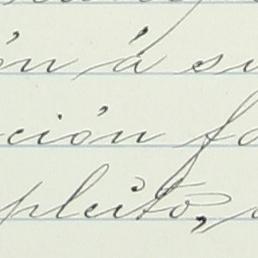 ón á su
ción fa
pleito,